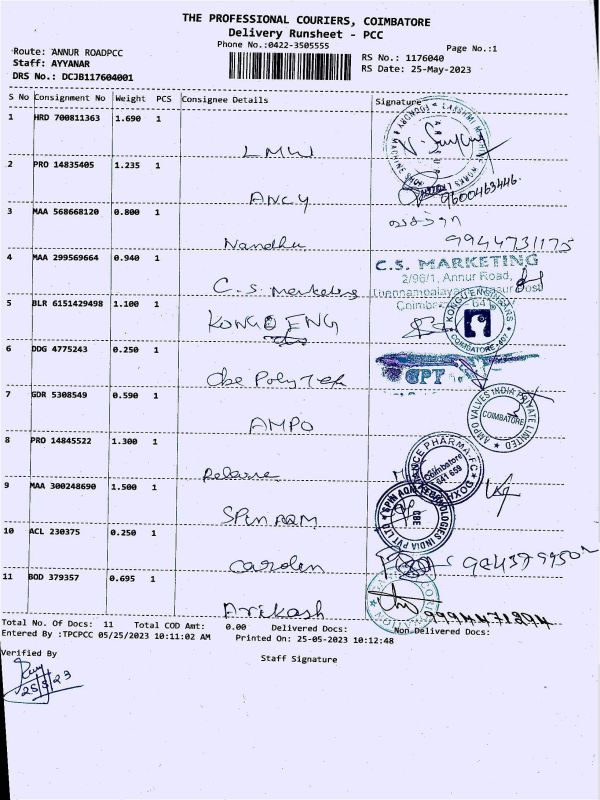 THE PROFESSIONAL COURIERS, COIMBATORE
Delivery Runsheet - PCC
Phone No.:0422-3505555
Page No.:1
Route: ANNUR ROADPCC
Staff: AYYANAR
DRS No.: DCJB117604001
RS No.: 1176040
RS Date: 25-May-2023
S No Consignment No Weight PCS Consignee Details Signature
1 HRD 700811363 1.690 1
LMW
2 PRO 14835405 1.235 1
9600463446.
ANCY
3 MAA 568668120 0.800 1
Nandhu 9944731175
4 MAA 299569664 0.940 1
C.S. MARKETING
2/96/1, Annur Road,
C.S. Marketing
5 BLR 6151429498 1.100 1
KONGO ENG
KONGU ENGINEERS
COIMBATORE
6 DDG 4775243 0.250 1
GPT
7 GDR 5308549 0.590 1
AMPO VALVES INDIA PRIVATE LIMITED
COIMBATORE
AMPO
8 PRO 14845522 1.300 1
PHARMA-FC
Coimbatore
641 659
9 MAA 300248690 1.500 1
SPIN AQM TECHNOLOGIES INDIA PVT LTD
CBE
SPIN AQM
10 ACL 230375 0.250 1
Carolin
11 BOD 379357 0.695 1
Arikash 9994471294
Total No. Of Docs: 11 Total COD Amt: 0.00 Delivered Docs: Non Delivered Docs:
Entered By :TPCPCC 05/25/2023 10:11:02 AM Printed On: 25-05-2023 10:12:48
Verified By Staff Signature
25/5/23